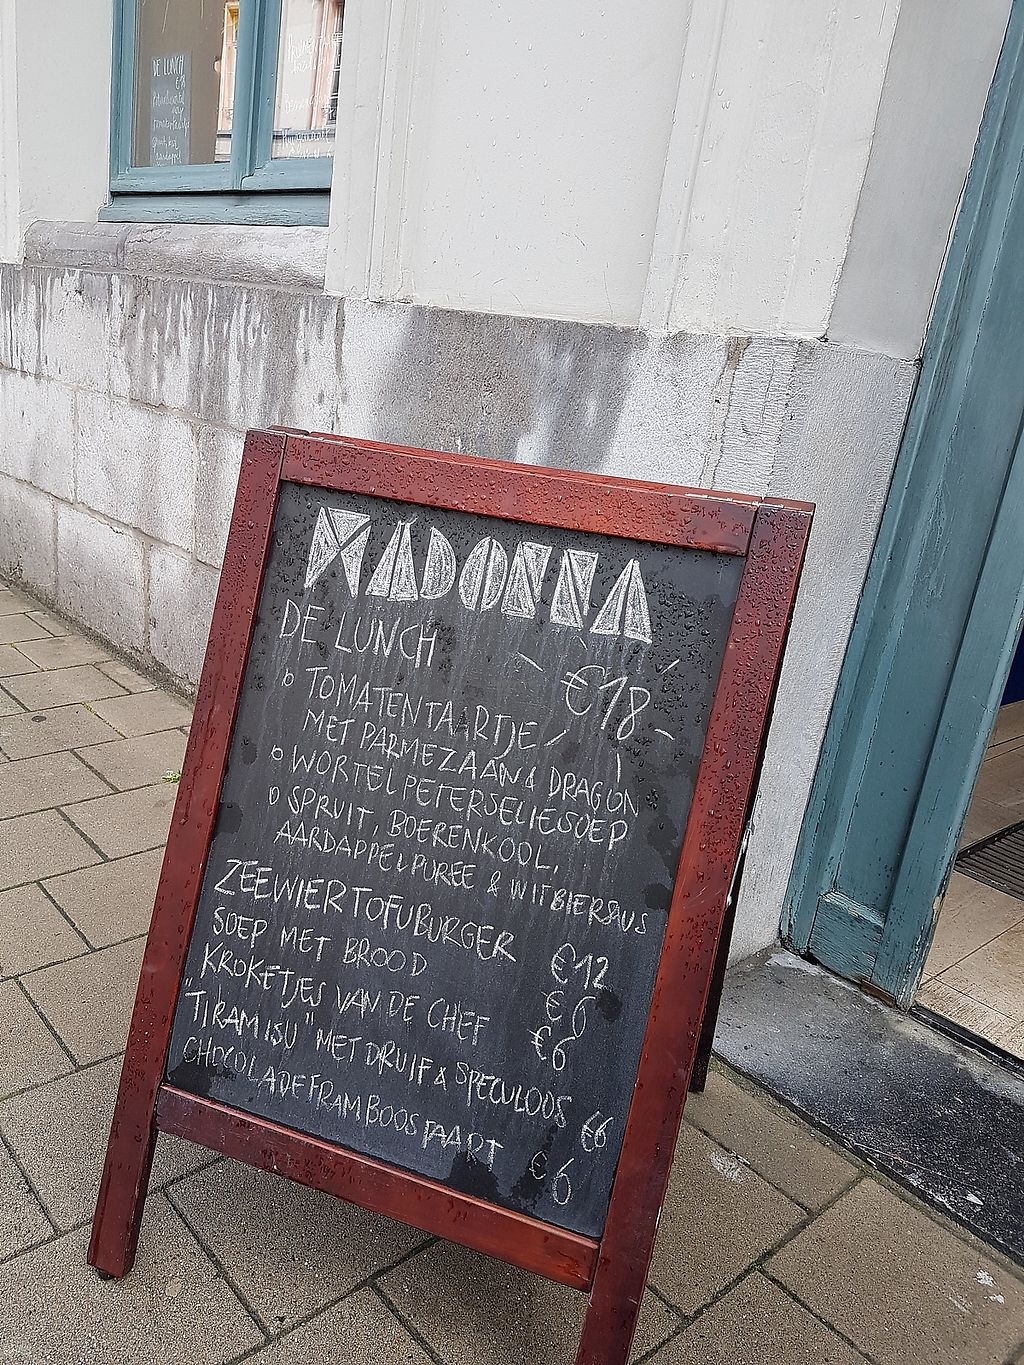 DE LUNCH
MADONNA
DE LUNCH €18
o TOMATENTAARTJE
MET PARMEZAAN & DRAGON
o WORTELPETERSELIESOEP
o SPRUIT, BOERENKOOL,
AARDAPPELPUREE & WITBIERSAUS
ZEEWIERTOFUBURGER €12
SOEP MET BROOD €6
KROKETJES VAN DE CHEF €6
"TIRAMISU" MET DRUIF & SPECULOOS €6
CHOCOLADEFRAMBOOSTAART €6